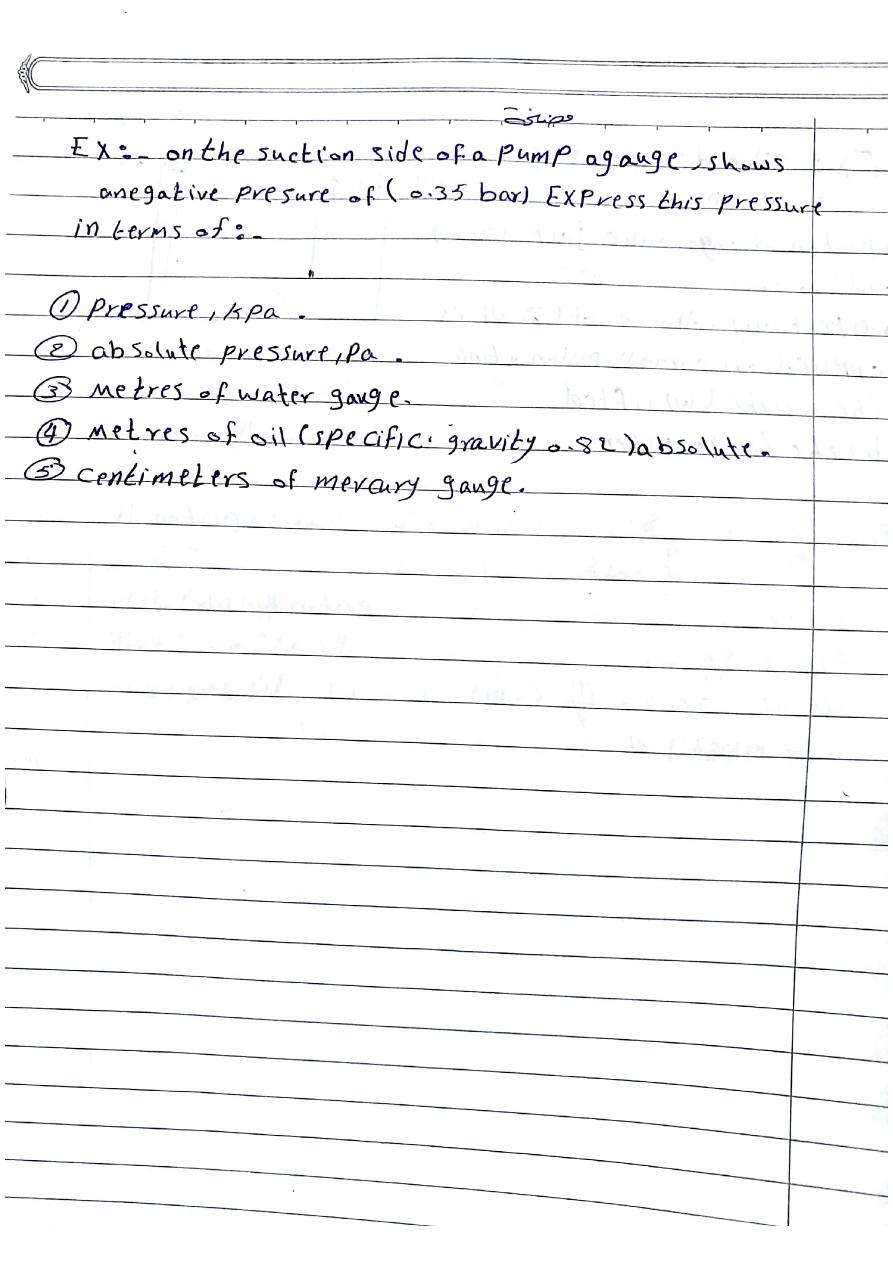 مضخة
EX:- on the suction side of a pump a gauge, shows
a negative presure of (0.35 bar) EXPress this pressure
in terms of:-
① Pressure, kpa.
② absolute pressure, Pa.
③ metres of water gauge.
④ metres of oil (specific. gravity 0.82) absolute.
⑤ centimeters of mercury gauge.